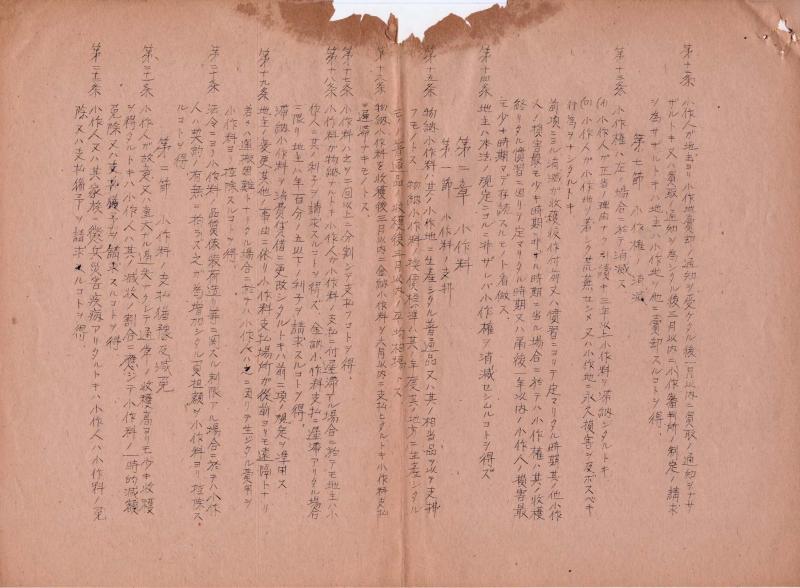 第十二条 小作人ガ地主ヨリ小作地売却ノ通知ヲ受ケタル後一月以内ニ買取ノ通知ヲナサ
ザルトキ又ハ買取ノ通知ヲ為シタル後三月以内ニ小作審判所ノ制定ノ請求
ヲ為サザルトキハ地主ハ小作地ヲ他ニ売却スルコトヲ得
第七節 小作権ノ消滅
第十三条 小作権ハ左ノ場合ニ於テ消滅ス
(イ)小作人ガ正当ノ理由ナク引続キ二年以上小作料ヲ滞納シタルトキ
(ロ)小作人ガ小作地ヲ著シク荒蕪セシメ又ハ小作地ニ永久損害ヲ及ボスベキ
行為ヲナシタルトキ
前項ニヨル消滅ガ収穫後作付前又ハ慣習ニヨリテ定マリタル時期其ノ他小作
人ノ損害最モ少キ時期ニ非ザル時期ニ当ル場合ニ於テハ小作権ハ其ノ収穫
終リタル慣習ニ因リテ定マリタル時期又ハ爾後一年以内ノ小作人ノ損害最
モ少キ時期マデ存続スルモノト看做ス
第十四条 地主ハ本法ノ規定ニヨルニ非ザレバ小作権ヲ消滅セシムルコトヲ得ズ
第二章 小作料
第一節 小作料ノ支払
第十五条 物納小作料ハ其ノ小作地ニ生産シタル普通品又ハ其ノ相当品ヲ以テ支払
フモノトス 物納小作料ノ換価標準ハ其ノ年度其ノ地方ニ生産シタル
モノノ普通品ノ収穫後三月以内ノ平均相場トス
第十六条 物納小作料ヲ収穫後三月以内ニ金納小作料ヲ六月以内ニ支払ヒタルトキ小作料支払
ノ遅滞ナキモノトス
第十七条 小作料ハ之ヲ二回以上ニ分割シテ支払フコトヲ得
第十八条 小作料ガ物納ナルトキ小作人ガ小作料ノ支払ニ付遅滞アル場合ニ於テモ地主ハ小
作人ニ其ノ利子ヲ請求スルコトヲ得ズ 金納小作料支払ニ遅滞アリタル場合
ニ限リ地主ハ年百分ノ五以下ノ利子ヲ請求スルコトヲ得
滞納小作料ヲ消費貸借ニ更改シタルトキハ前二項ノ規定ヲ準用ス
第十九条 地主ノ変更其ノ他ノ事由ニ依リ小作料支払場所ガ従前ヨリモ遠隔トナリ
若クハ運搬困難トナリタル場合ニ於テハ小作人ハ之ニ因リテ生ジタル費用ヲ
小作料ヨリ控除スルコトヲ得
第二十条 法令ニヨリ小作料ノ品質俵装荷造リ等ニ関スル制限アル場合ニ於テハ小作
人ハ契約ノ有無ニ拘ラズ之ガ為増加シタル負担額ヲ小作料ヨリ控除ス
ルコトヲ得
第二節 小作料ノ支払猶予及減免
第二十一条 小作人ガ故意又ハ重大ナル過失ナクシテ通常ノ収穫高ヨリモ少キ収穫
ヲ得タルトキハ小作人ハ其ノ減収ノ割合ニ應ジテ小作料ノ一時的減額
免除又ハ支払猶予ヲ請求スルコトヲ得
第二十二条 小作人又ハ其ノ家族ニ徴兵災害疾病アリタルトキハ小作人ハ小作料ノ免
除又ハ支払猶予ヲ請求スルコトヲ得